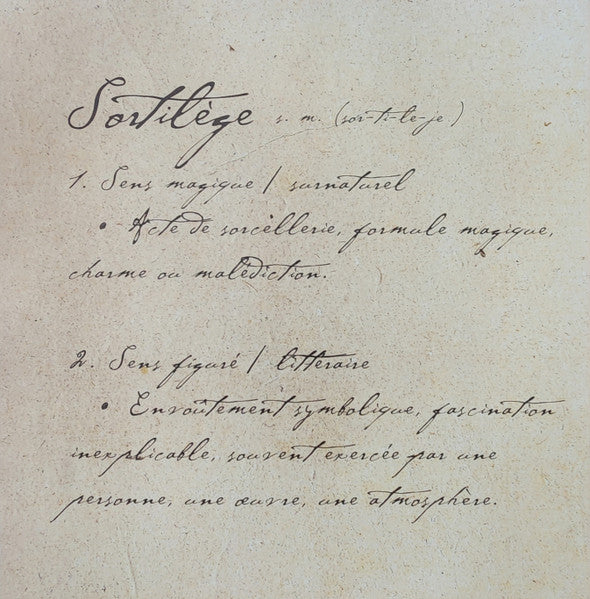 Sortilège s. m. (sor-ti-le-je)
1. Sens magique / surnaturel
• Acte de sorcellerie, formule magique,
charme ou malédiction.
2. Sens figuré / littéraire
• Envoûtement symbolique, fascination
inexplicable, souvent exercée par une
personne, une œuvre, une atmosphère.